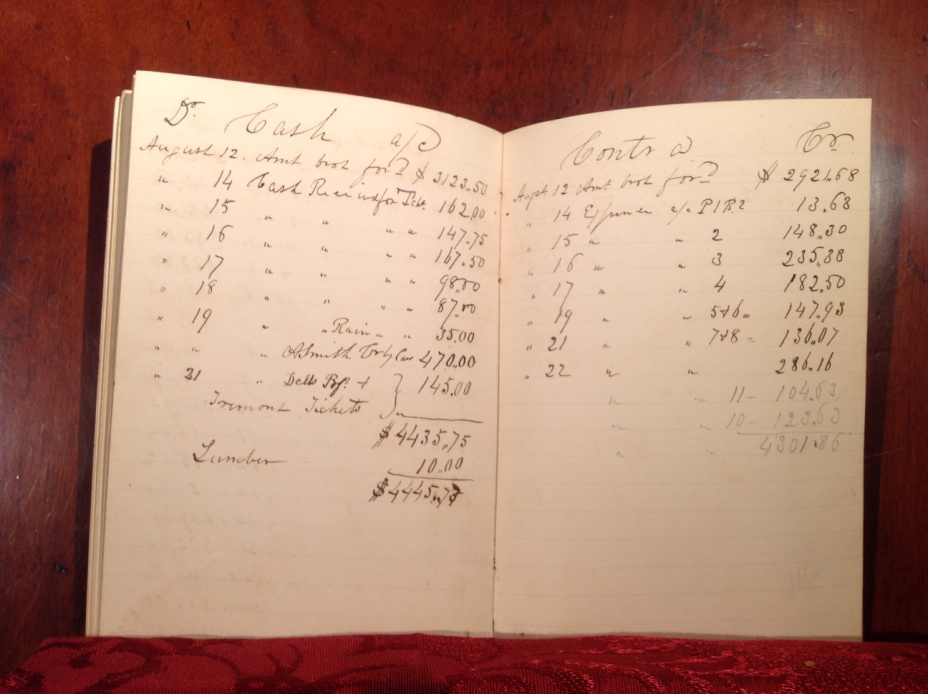 Dr Cash a/c
August 12. Amt brot for.d $ 3123.50
" 14 Cash Received for Tckt. 162.00
" 15 " " " " 147.75
" 16 " " " " 167.50
" 17 " " " " 98.00
" 18 " " " " 87.00
" 19 " " Rain " " 35.00
" " " Smith 470.00
" 21 " 145.00
Tremont Tickets "
$ 4435.75
Lumber 10.00
$ 4445.75
Contra Cr
Augst 12 Amt brot for.d $ 2921.68
" 14 Expenses a/c 13.68
" 15 " " 2 148.30
" 16 " " 3 235.88
" 17 " " 4 182.50
" 19 " " 5+6 = 147.93
" 21 " " 7+8 = 136.07
" 22 " " 286.16
" 11 - 104.63
" " 10 - 123.63
" " 4301.86